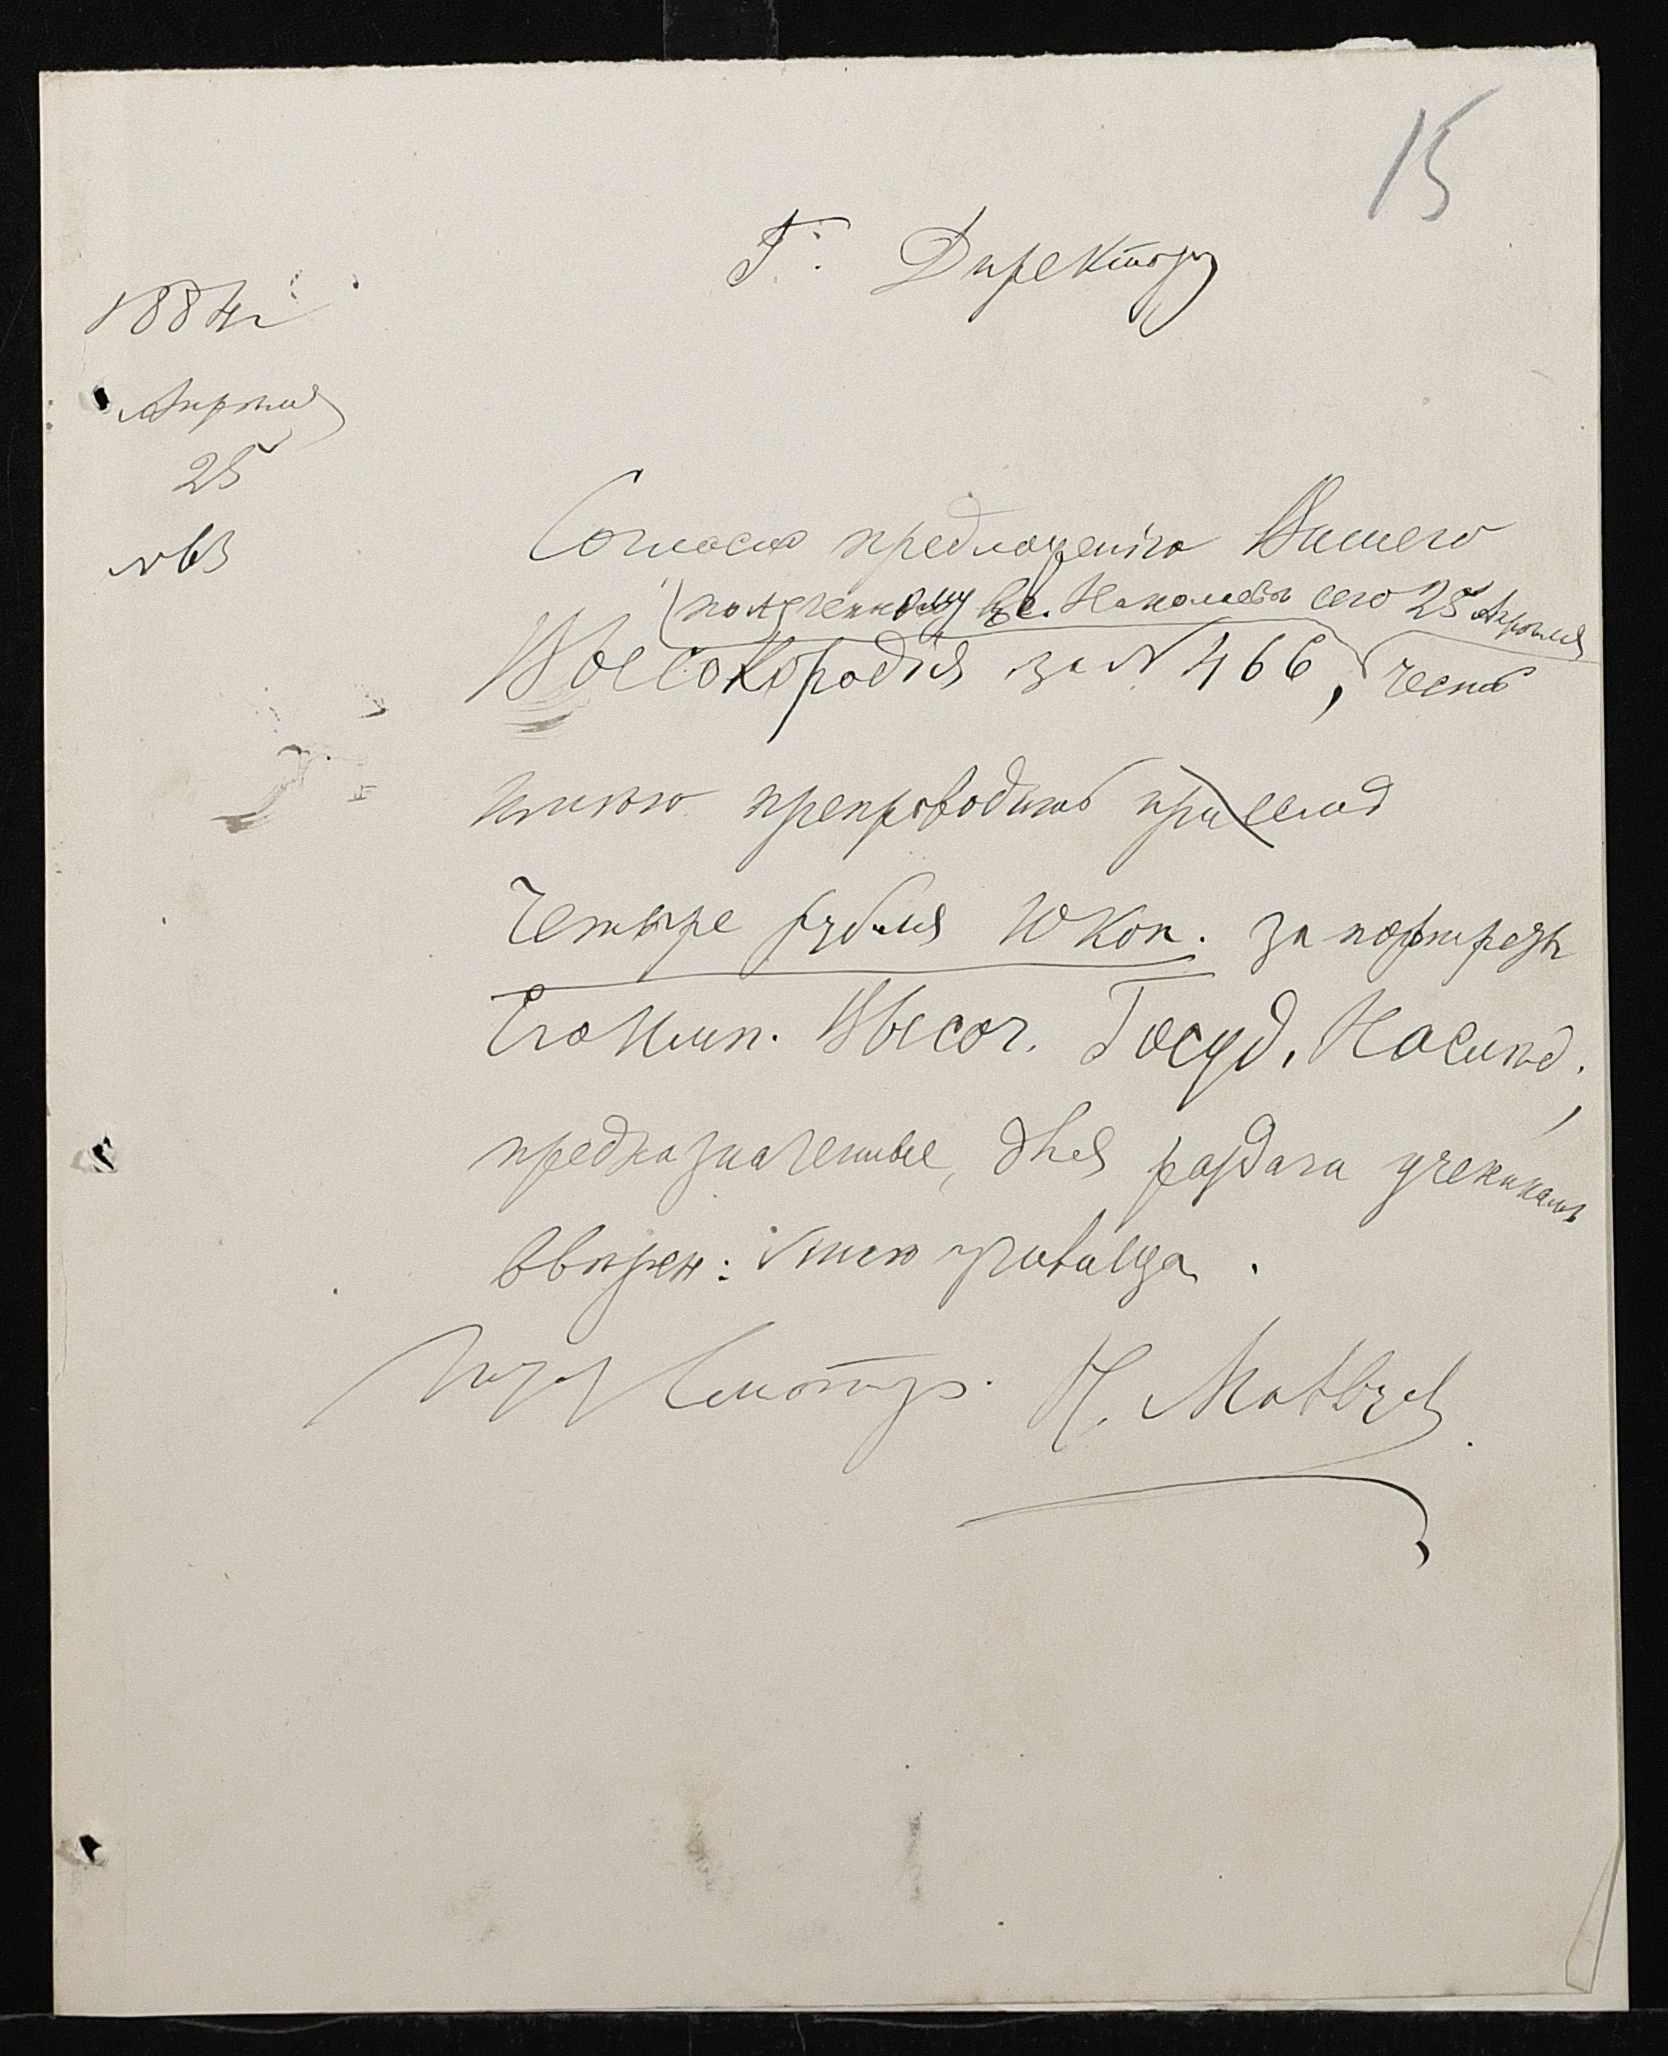 15
Г. Директору
1884 г
Апрѣля
25
№ 63
Согласно предложенію Вашего
(полученному въ с. Николаевъ сего 25 Апрѣля
Высокородія за № 466, честь
имѣю препроводить при семъ
Четыре рубля 10 коп. за портретъ
Его Имп. Высоч. Госуд. Наслѣд.,
предназначенные, для раздачи ученикамъ
ввѣрен: мнѣ училища.
Смотр. Н. Матвѣев